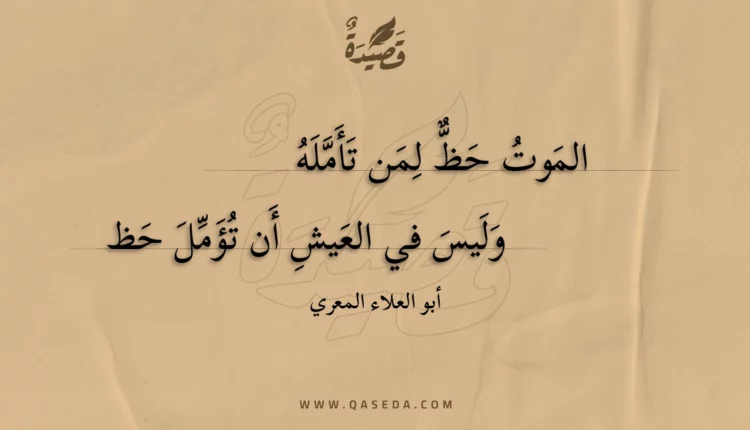 قَصِيدَةٌ
المَوتُ حَظٌّ لِمَن تَأَمَّلَهُ
وَلَيسَ في العَيشِ أَن تُؤَمِّلَ حَظ
أبو العلاء المعري
WWW.QASEDA.COM